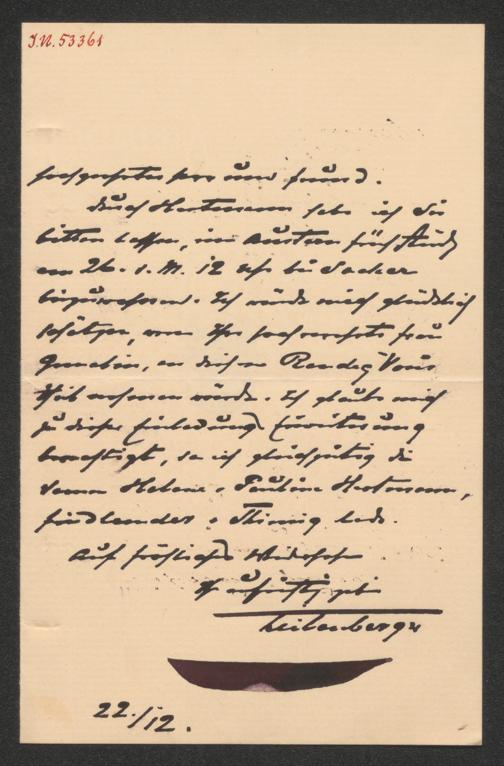 J.N. 53361
Hochgeehrter Herr und Freund.
Durch Hartmann habe ich Sie
bitten lassen, im Austern
am 26. d. M. 12 Uhr bei Sacher
beizuwohnen. Ich würde mich glücklich
schätzen, wenn Ihre hochverehrte Frau
Gemahlin, an diesem Rendez Vous
Theil nehmen würde. Ich glaube mich
zu dieser Einladung Erweiterung
berechtigt, da ich gleichzeitig die
Damen Helene, Pauline Hartmann,
Friedlander, Thimig lade.
Auf fröhliches Wiedersehen
Ihr aufrichtig
22./12.